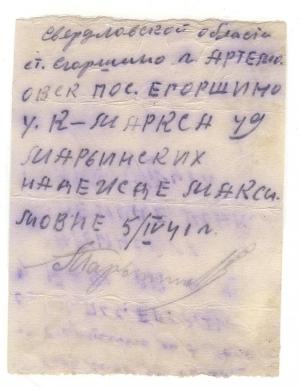 Свердловской области
ст. Егоршино г. АРТЕМ
ОВСК ПОС. ЕГОРШИНО
У. К-МАРКСА 49
МАРЬИНСКИХ
НАДЕЖДЕ МАКСИ-
МОВНЕ 5/IV 41 г.